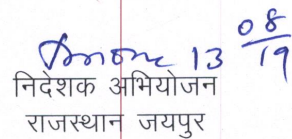 13 08/19
निदेशक अभियोजन
राजस्थान जयपुर